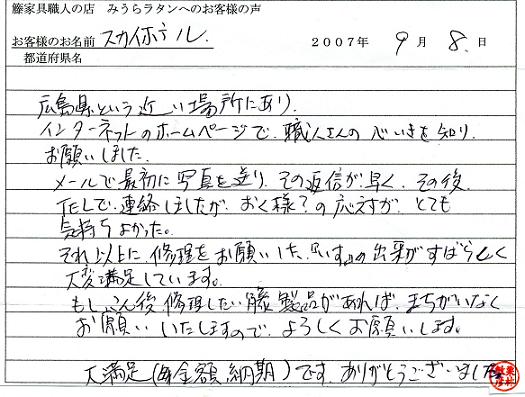 籐家具職人の店　みうらラタンへのお客様の声
お客様のお名前　スカイホテル.　2007年 9月 8.日
都道府県名
広島県という近い場所にあり.
インターネットのホームページで、職人さんの心いきを知り、
お願いしました.
メールで最初に写真を送り、その返信が早く、その後、
TELで、連絡しましたが、おく様?の応えすが、とても
気持ちよかった。
それ以上に修理をお願いした、いすの出来がすばらしく
大変満足しています。
もし、こん後修理したい籐製品があれば、まちがいなく
お願いいたしますので、よろしくお願いします。
大満足(金額、納期)です、ありがとうございました